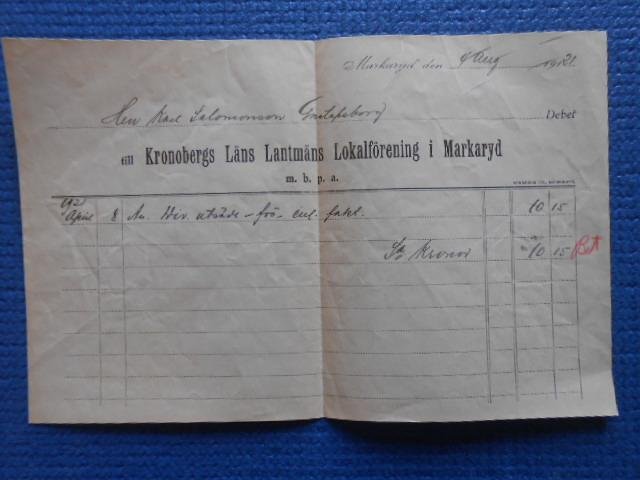 Markaryd den 4 Aug 1921
Herr Karl Salomonsson Gustafsborg Debet
till Kronobergs Läns Lantmäns Lokalförening i Markaryd
m. b. p. a.
1921
April 8 An. Div. utsäde-frö- enl. fakt. 10 15
Sa Kronor 10 15 Bet